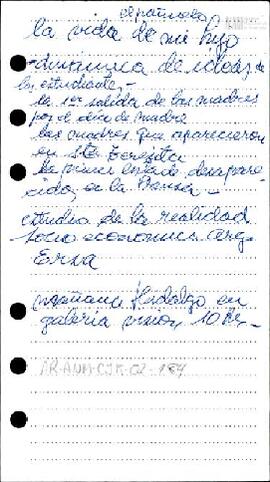 española
la vida de mi hijo
- dinamica de ideas de
los estudiantes -
la 1er salida de las madres
por el dia de madre
los cuadros que aparecieron
en Sta Teresita
la primer lista de desapare
cidos en la Prensa -
estudio de la realidad
socio economica Arg
Erna
mañana Hidalgo en
galeria vision 10 hs -
AR-ANM-CJM-02-184